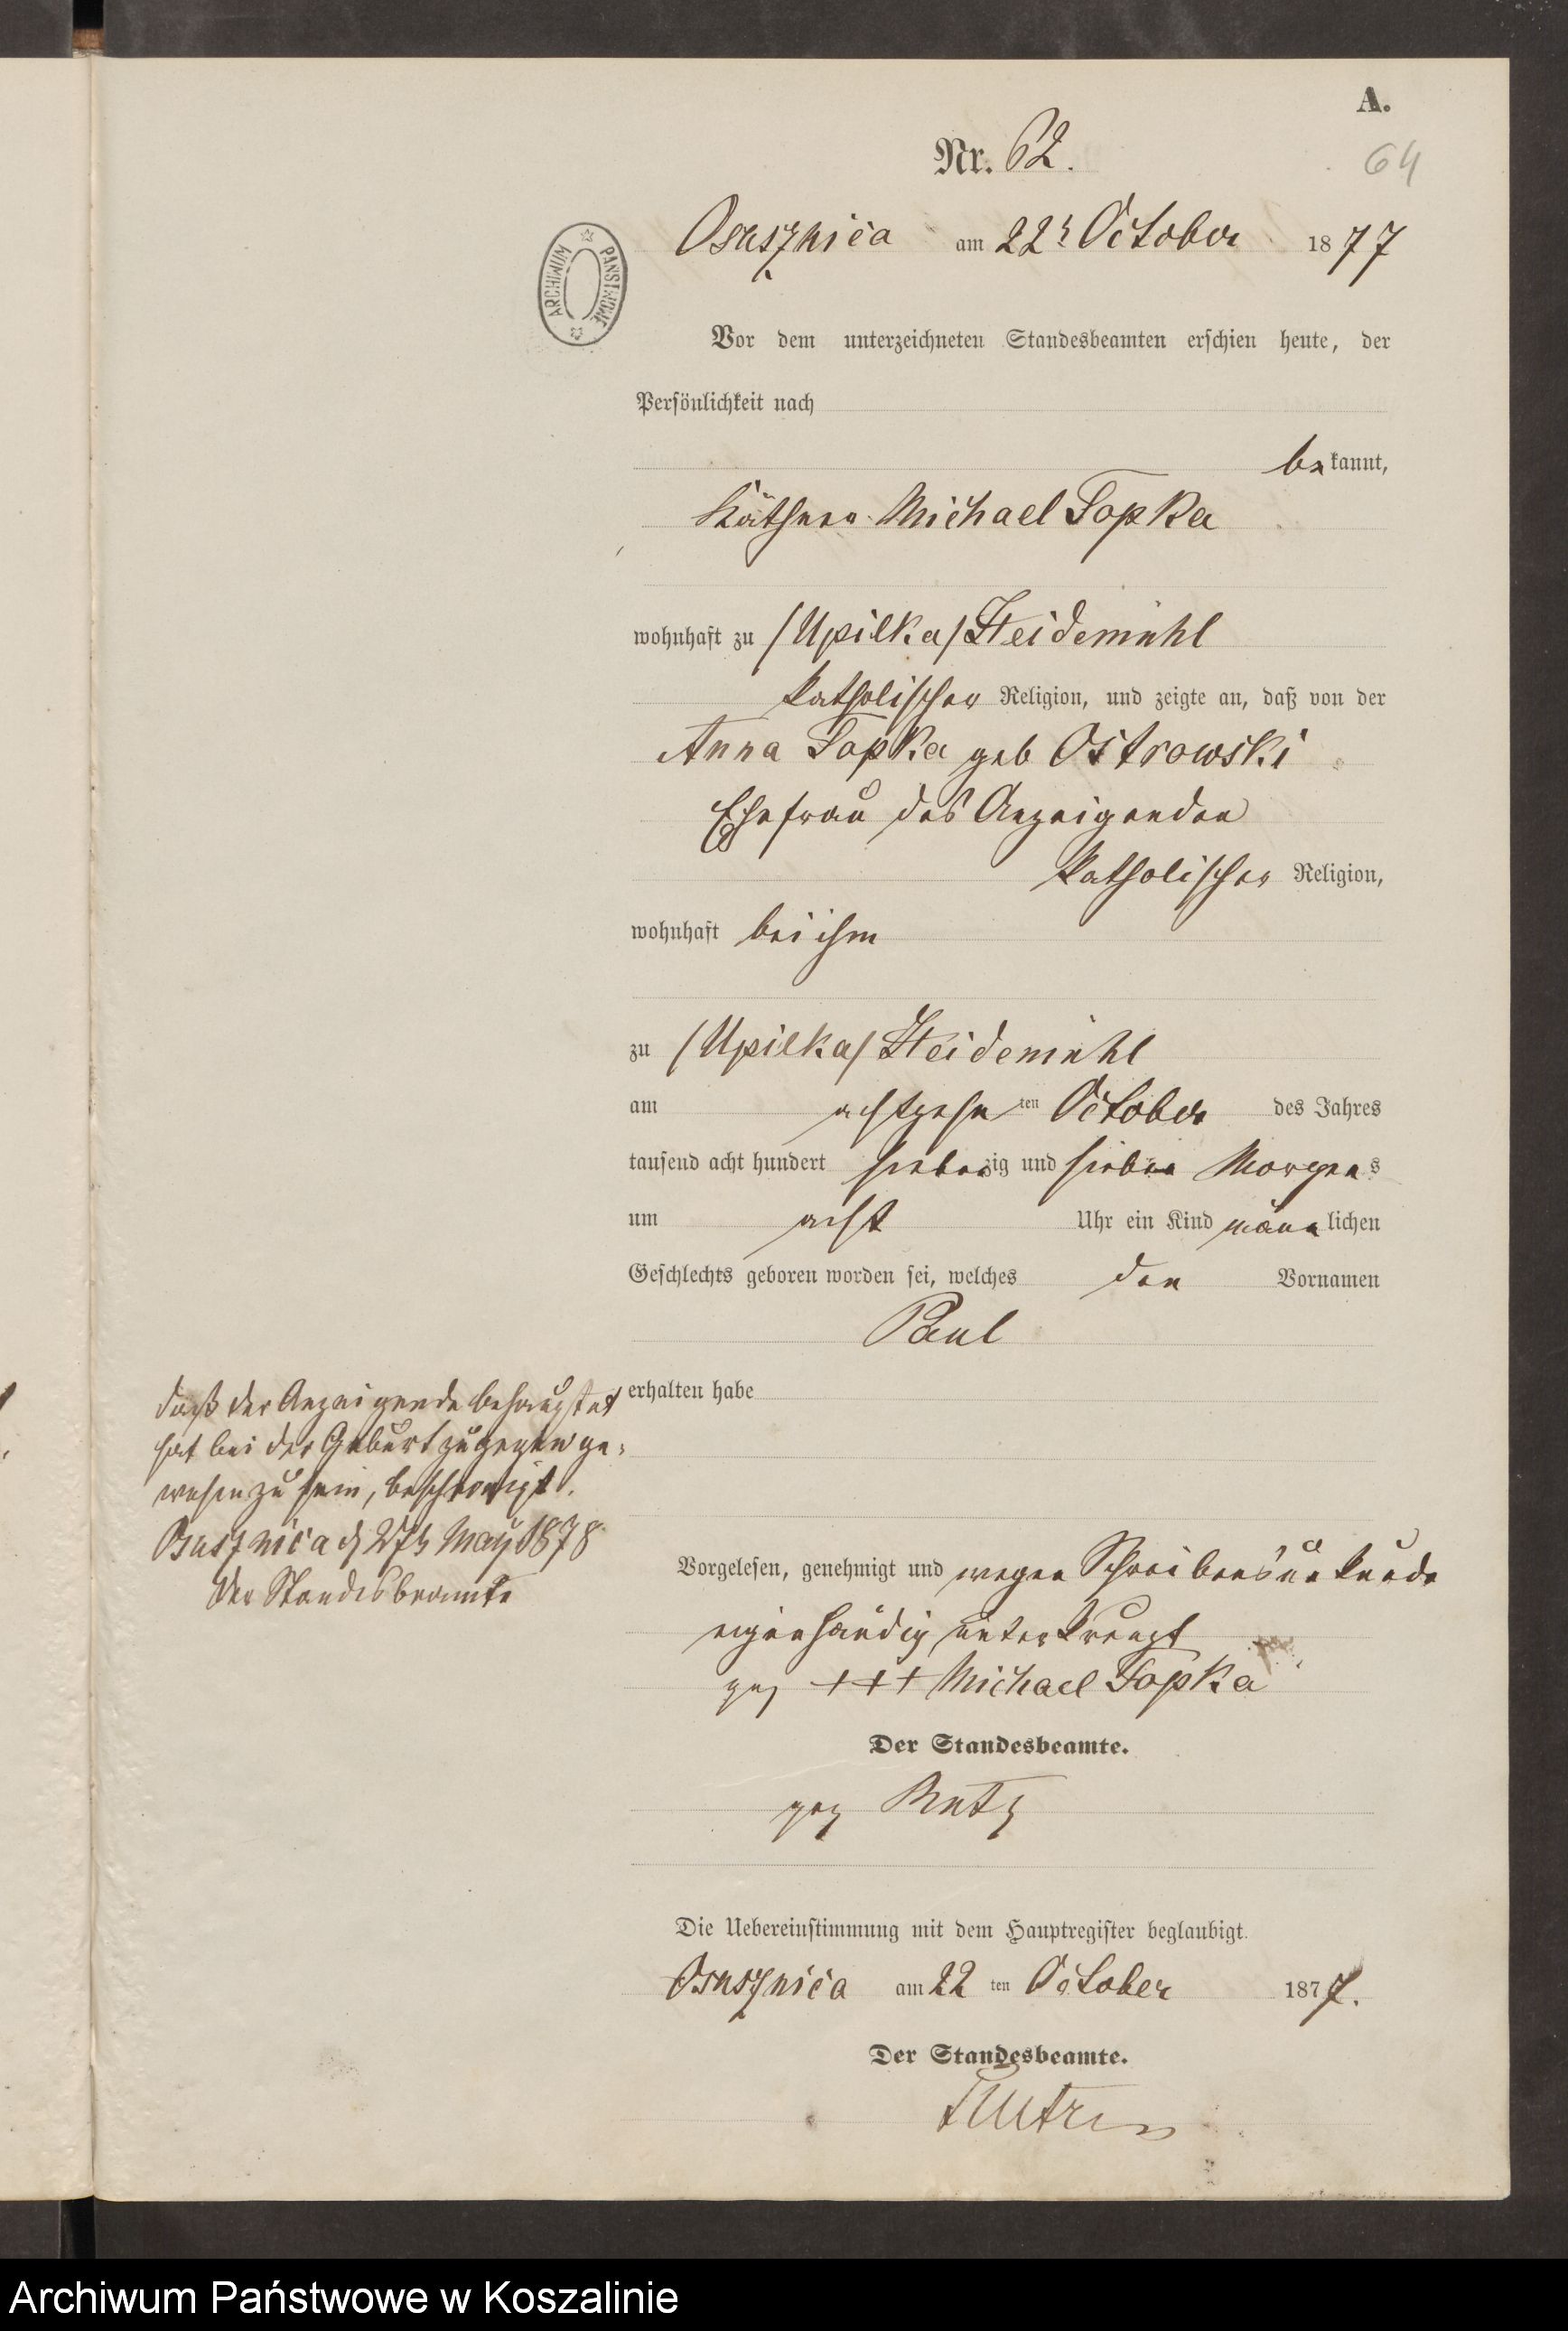 A.
Nr. 62.
64
Osusznica am 22t October 1877
ARCHIWUM PAŃSTWOWE
Vor dem unterzeichneten Standesbeamten erschien heute, der
Persönlichkeit nach
bekannt,
Käthner Michael Topka
wohnhaft zu /Upilka/ Heidemühl
katholischer Religion, und zeigte an, daß von der
Anna Topka geb Ostrowski
Ehefrau des Anzeigenden
katholischer Religion,
wohnhaft bei ihm
zu /Upilka/ Heidemühl
am achtzehnten October des Jahres
tausend acht hundert siebenzig und sieben Morgens
um acht Uhr ein Kind männlichen
Geschlechts geboren worden sei, welches den Vornamen
Paul
erhalten habe
daß der Anzeigende behauptet
hat bei der Geburt zugegen ge-
wesen zu sein, bescheinigt.
Osusznica d 27t May 1878
Der Standesbeamte
Vorgelesen, genehmigt und wegen Schreibensunkunde
eigenhändig unterkreuzt
gez +++ Michael Topka
Der Standesbeamte.
gez
Die Uebereinstimmung mit dem Hauptregister beglaubigt.
Osusznica am 22 ten October 1877.
Der Standesbeamte.
Archiwum Państwowe w Koszalinie